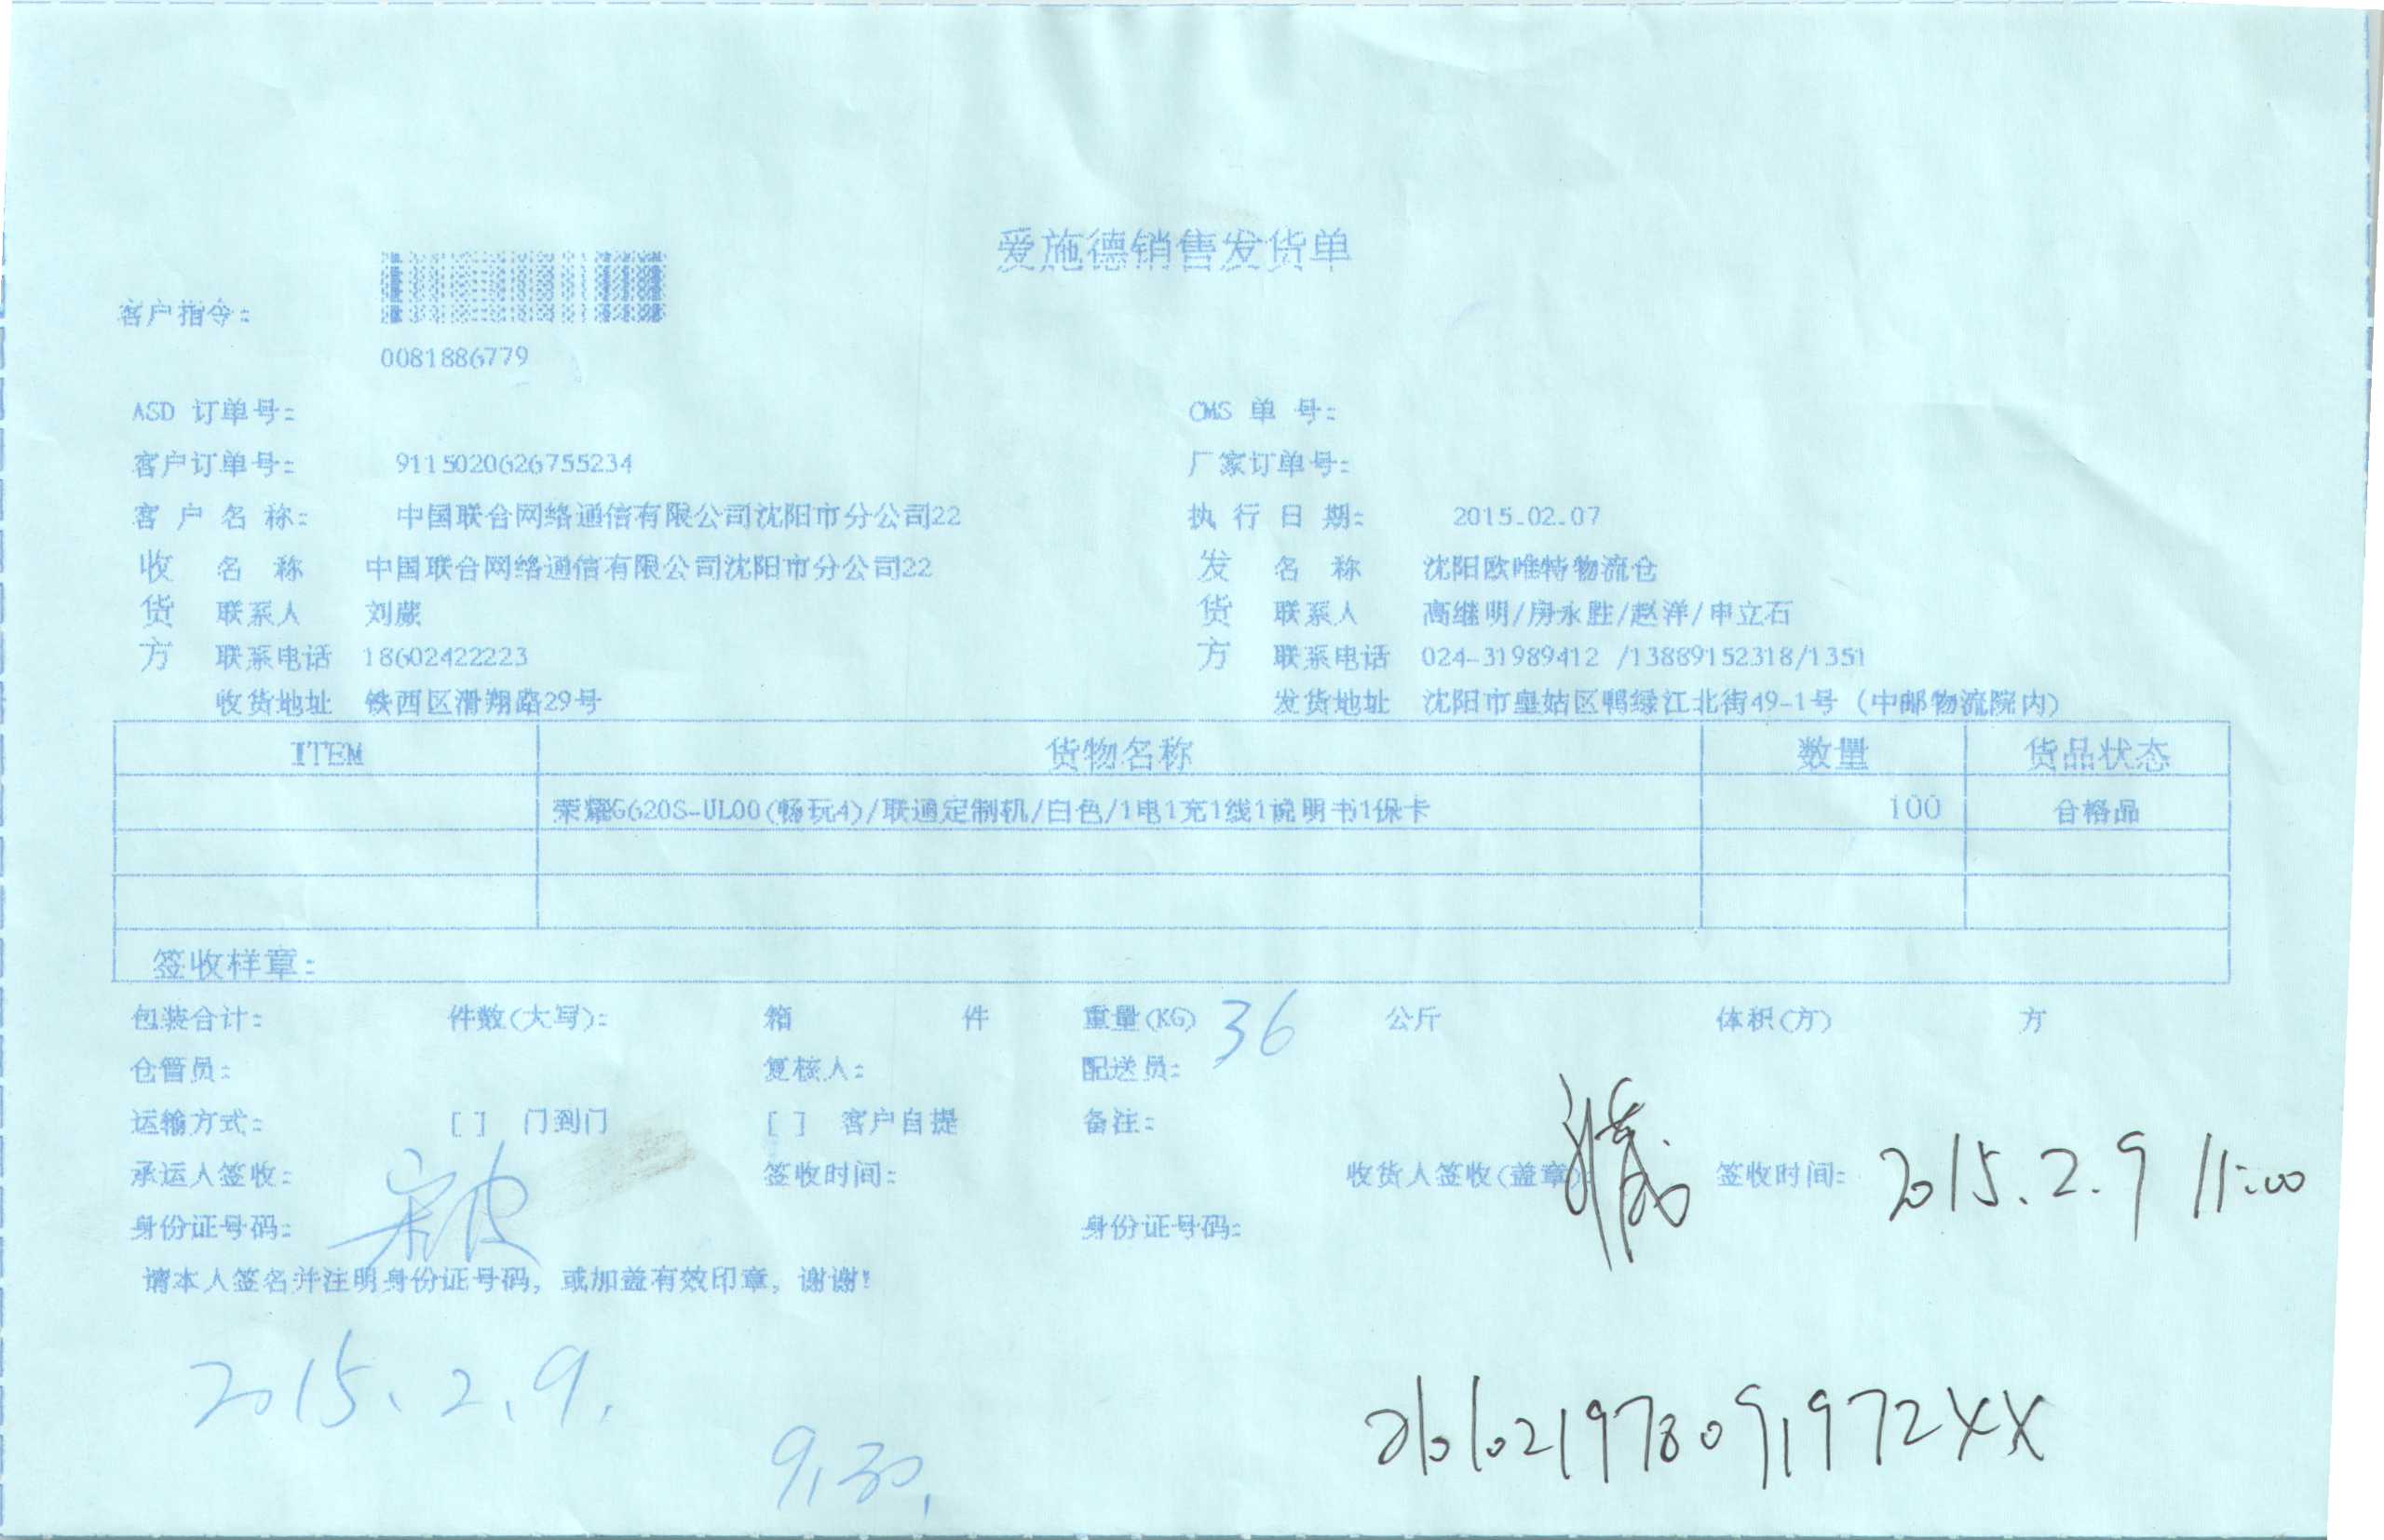 爱施德销售发货单
客户指令:
0081886779
ASD 订单号: CMS 单 号:
客户订单号: 9115020626755234 厂家订单号:
客 户 名 称: 中国联合网络通信有限公司沈阳市分公司22 执 行 日 期: 2015.02.07
收 名 称 中国联合网络通信有限公司沈阳市分公司22 发 名 称 沈阳欧唯特物流仓
货 联系人 刘葳 货 联系人 高继明/房永胜/赵洋/申立石
方 联系电话 18602422223 方 联系电话 024-31989412 /13889152318/1351
收货地址 铁西区滑翔路29号 发货地址 沈阳市皇姑区鸭绿江北街49-1号 (中邮物流院内)
ITEM 货物名称 数量 货品状态
荣耀G620S-UL00(畅玩4)/联通定制机/白色/1电1充1线1说明书1保卡 100 合格品
签收样章:
包装合计: 件数(大写): 箱 件 重量(KG) 36 公斤 体积(方) 方
仓管员: 复核人: 配送员:
运输方式: [ ] 门到门 [ ] 客户自提 备注:
承运人签收: 签收时间: 收货人签收(盖章) 签收时间: 2015.2.9 11:00
身份证号码: 身份证号码:
请本人签名并注明身份证号码, 或加盖有效印章, 谢谢!
2015.2.9.
9:30.